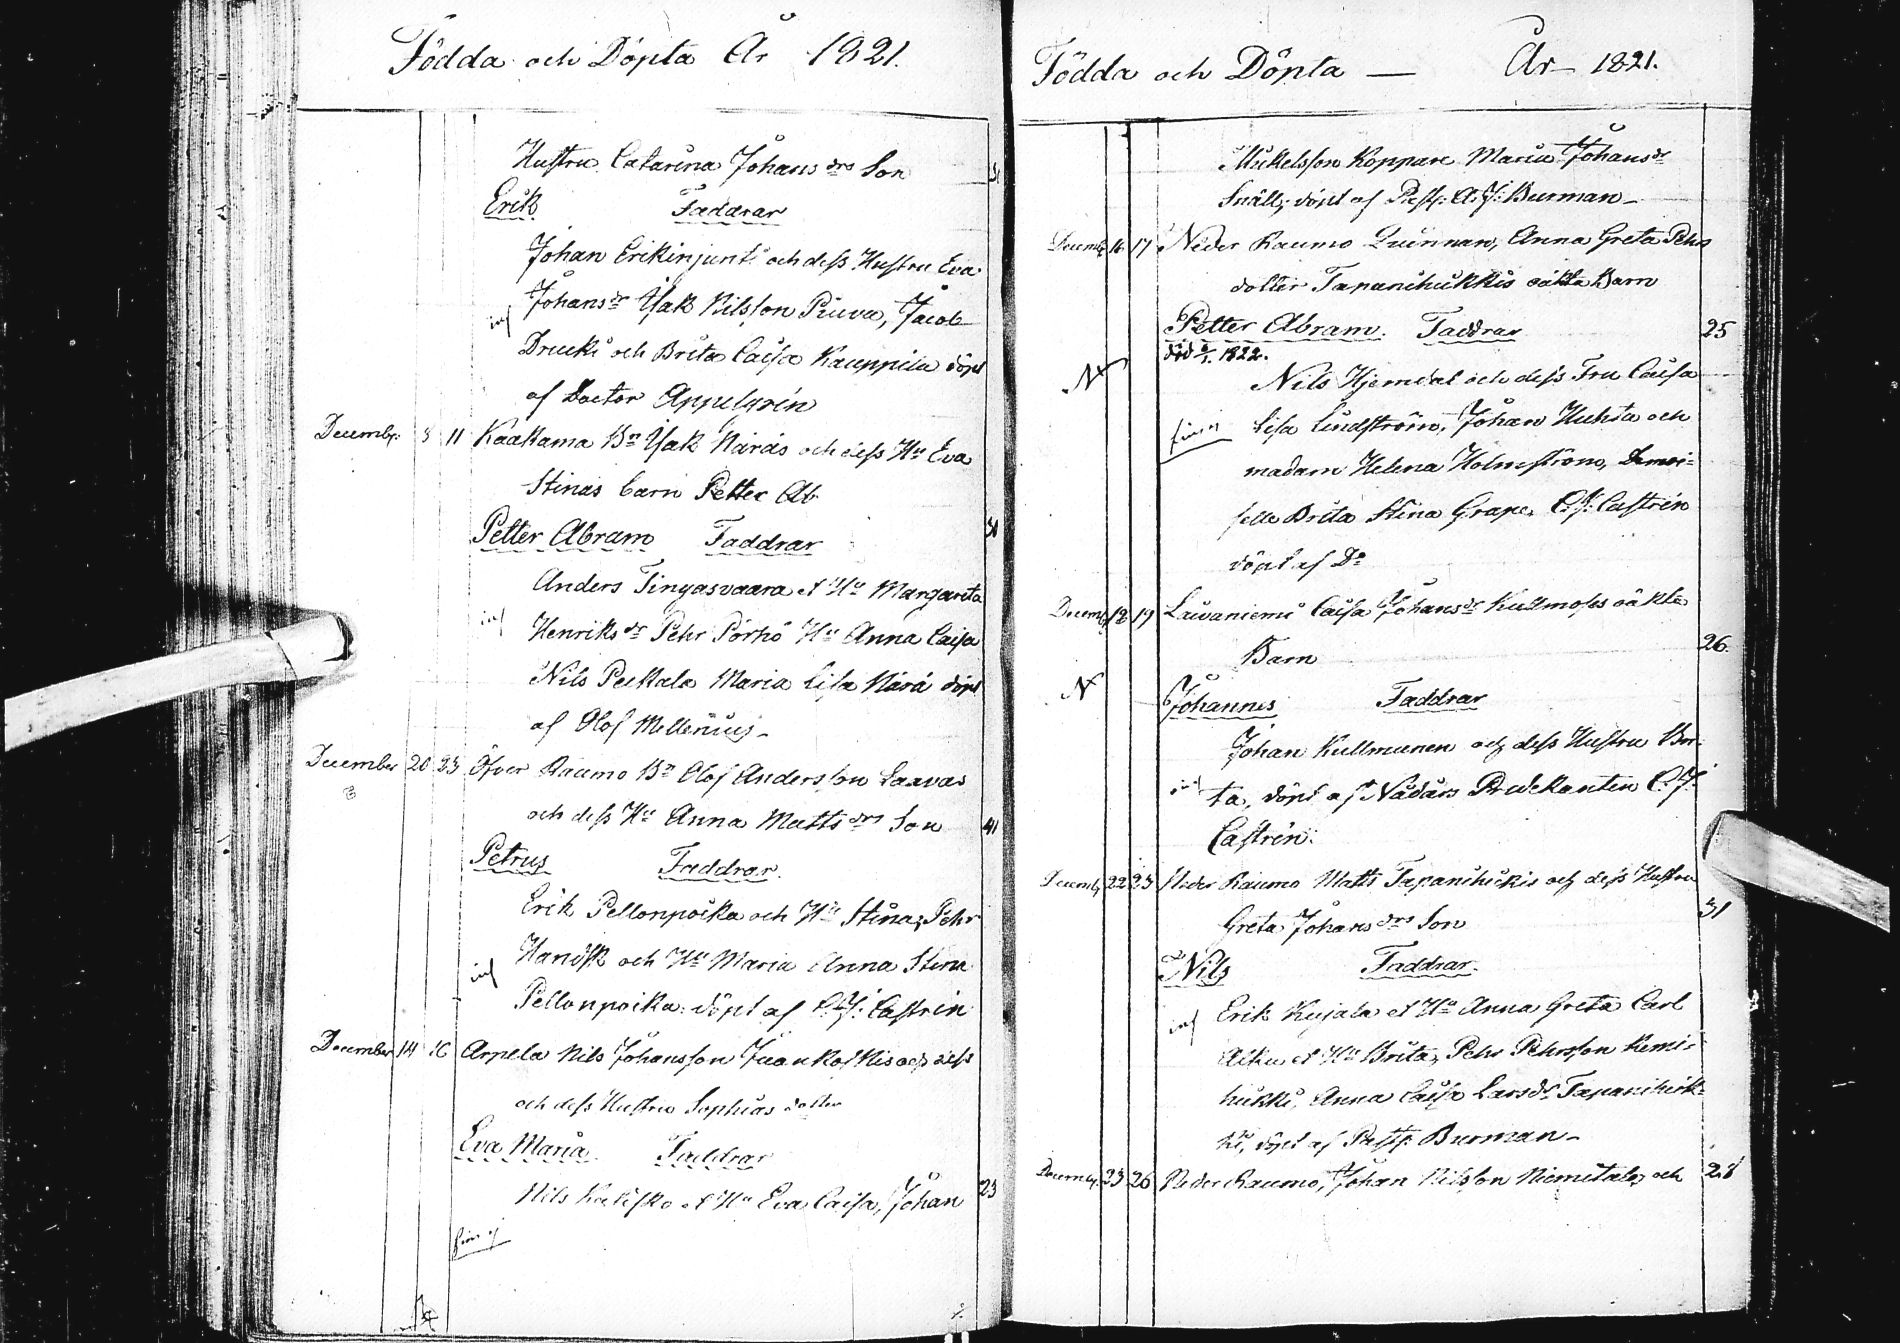 Födda och Döpta År 1821.
Hustru Catarina Johansdrs Son
Erik Faddrar
Johan Erikinjunti och dess Hustru Eva
Johansdr Isak Nilsson Piuva, Jacob
inf
Drucki och Brita Caisa Kauppila döpt
af Doctor Appelgrén
Decembr: 8 11 Kaakama Bn Isak Närás och dess Hu Eva
Stinas barn Petter Ab
Petter Abram Faddrar
Anders Tingasvaara et Hu Margareta
inf
Henriksdr Pehr Pörhö Hu Anna Caisa
Nils Peckala Maria Lisa Närä döpt
af Olof Mellenius
December 20 23 Öfver Raumo Bn Olof Andersson Laavas
och dess Hu Anna Mattsdrs Son 41
Petrus Faddrar.
Erik Pellonpoika och Hu Stina, Pehr
Handsk och Hu Maria Anna Stina
inf
Pellonpoika: döpt af C.J: Castrén
December 14 16 Arpela Nils Johansson Juankoskis och dess
och dess Hustru Sophias dotter
Eva Maria Faddrar
Nils et Hu Eva Caisa, Johan 23
Födda och Döpta — År 1821.
Mickelsson Koppare Maria Johansdr
Snäll, döpt af Past: A.J: Burman
Decemb 16 17 Neder Raumo Quinnan, Anna Greta Pehrs
dotter Tapanihukkis oäkta Barn
Petter Abram. Faddrar 25
död 6/1. 1822.
N
Nils Hjerndal och dess Fru Caisa
Lisa Lindström, Johan Huhta och
madam Helena Holmström, Demoi-
selle Brita Stina Grape, C.J: Castrén
döpt af Do
Decemb 18 19 Laivaniemi Caisa Johansdr Kullmoses oäkta
Barn 26.
N
Johannes Faddrar
Johan Kullmunen och dess Hustru Bri-
inf
ta, döpt af Nådårs Predikanten C.J:
Castrén:
Decemb 22 23 Neder Raumo Matts Tapanihukkis och dess Hustru
Greta Johansdrs Son 31
Nils Faddrar.
Erik Kujala et Hu Anna Greta Carl
inf
et Hu Brita, Pehr Pehrsson Kemi-
hukki, Anna Caisa Larsdr Tapanihuk-
ki, döpt af Past: Burman
Decemb. 23 26 Neder Raumo, Johan Nilsson Niemitalo och 28